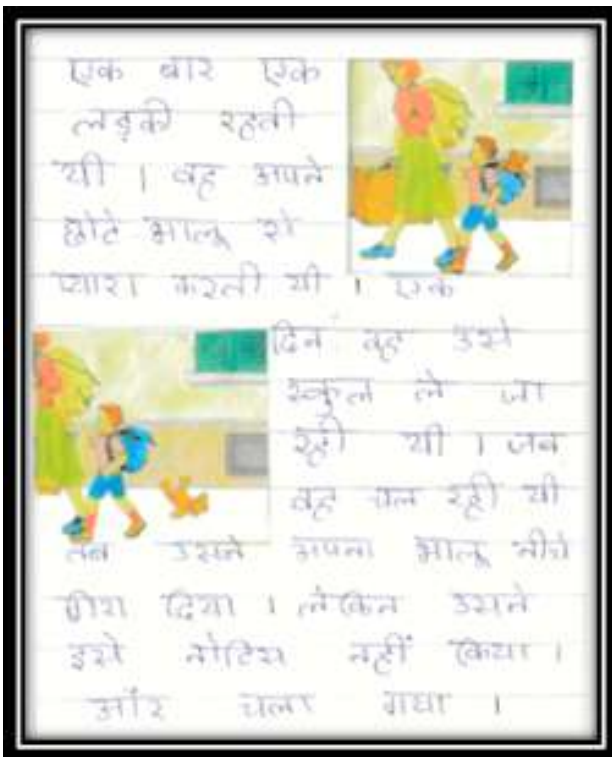 एक बार एक
लड़की रहती
थी । वह अपने
छोटे भालू से
प्यारा करती थी । एक
दिन वह उसे
स्कुल ले जा
रही थी । जब
वह चल रही थी
तब उसने अपना भालू नीचे
गिरा दिया । लेकिन उसने
इसे नोटिस नहीं किया ।
और चला गया ।